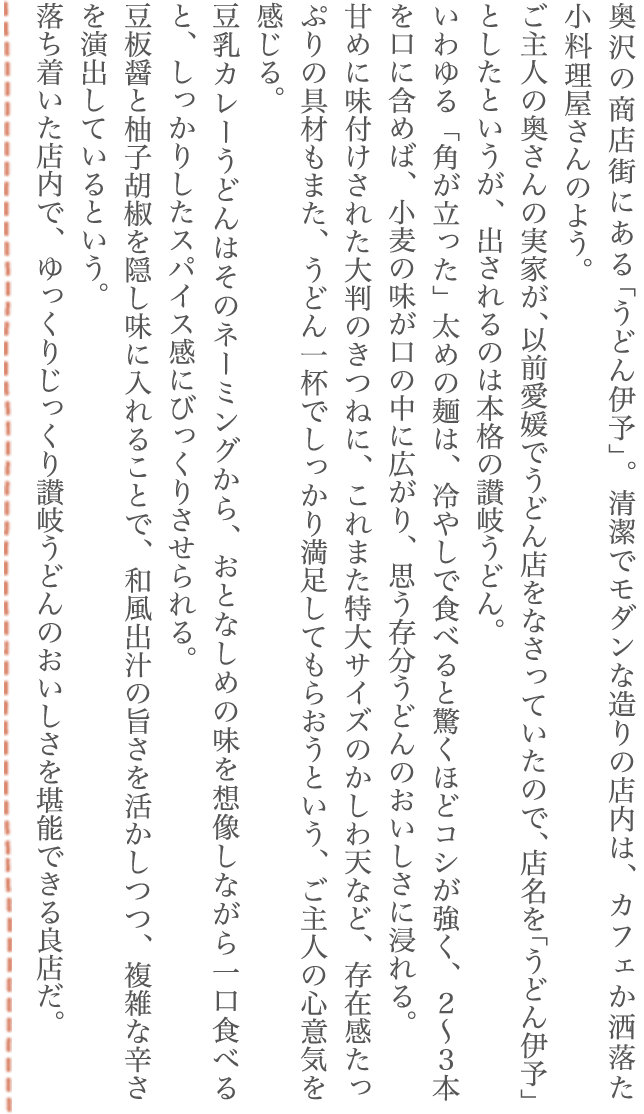 奥沢の商店街にある「うどん伊予」。清潔でモダンな造りの店内は、カフェか洒落た
小料理屋さんのよう。
ご主人の奥さんの実家が、以前愛媛でうどん店をなさっていたので、店名を「うどん伊予」
としたというが、出されるのは本格の讃岐うどん。
いわゆる「角が立った」太めの麺は、冷やしで食べると驚くほどコシが強く、２〜３本
を口に含めば、小麦の味が口の中に広がり、思う存分うどんのおいしさに浸れる。
甘めに味付けされた大判のきつねに、これまた特大サイズのかしわ天など、存在感たっ
ぷりの具材もまた、うどん一杯でしっかり満足してもらおうという、ご主人の心意気を
感じる。
豆乳カレーうどんはそのネーミングから、おとなしめの味を想像しながら一口食べる
と、しっかりしたスパイス感にびっくりさせられる。
豆板醤と柚子胡椒を隠し味に入れることで、和風出汁の旨さを活かしつつ、複雑な辛さ
を演出しているという。
落ち着いた店内で、ゆっくりじっくり讃岐うどんのおいしさを堪能できる良店だ。